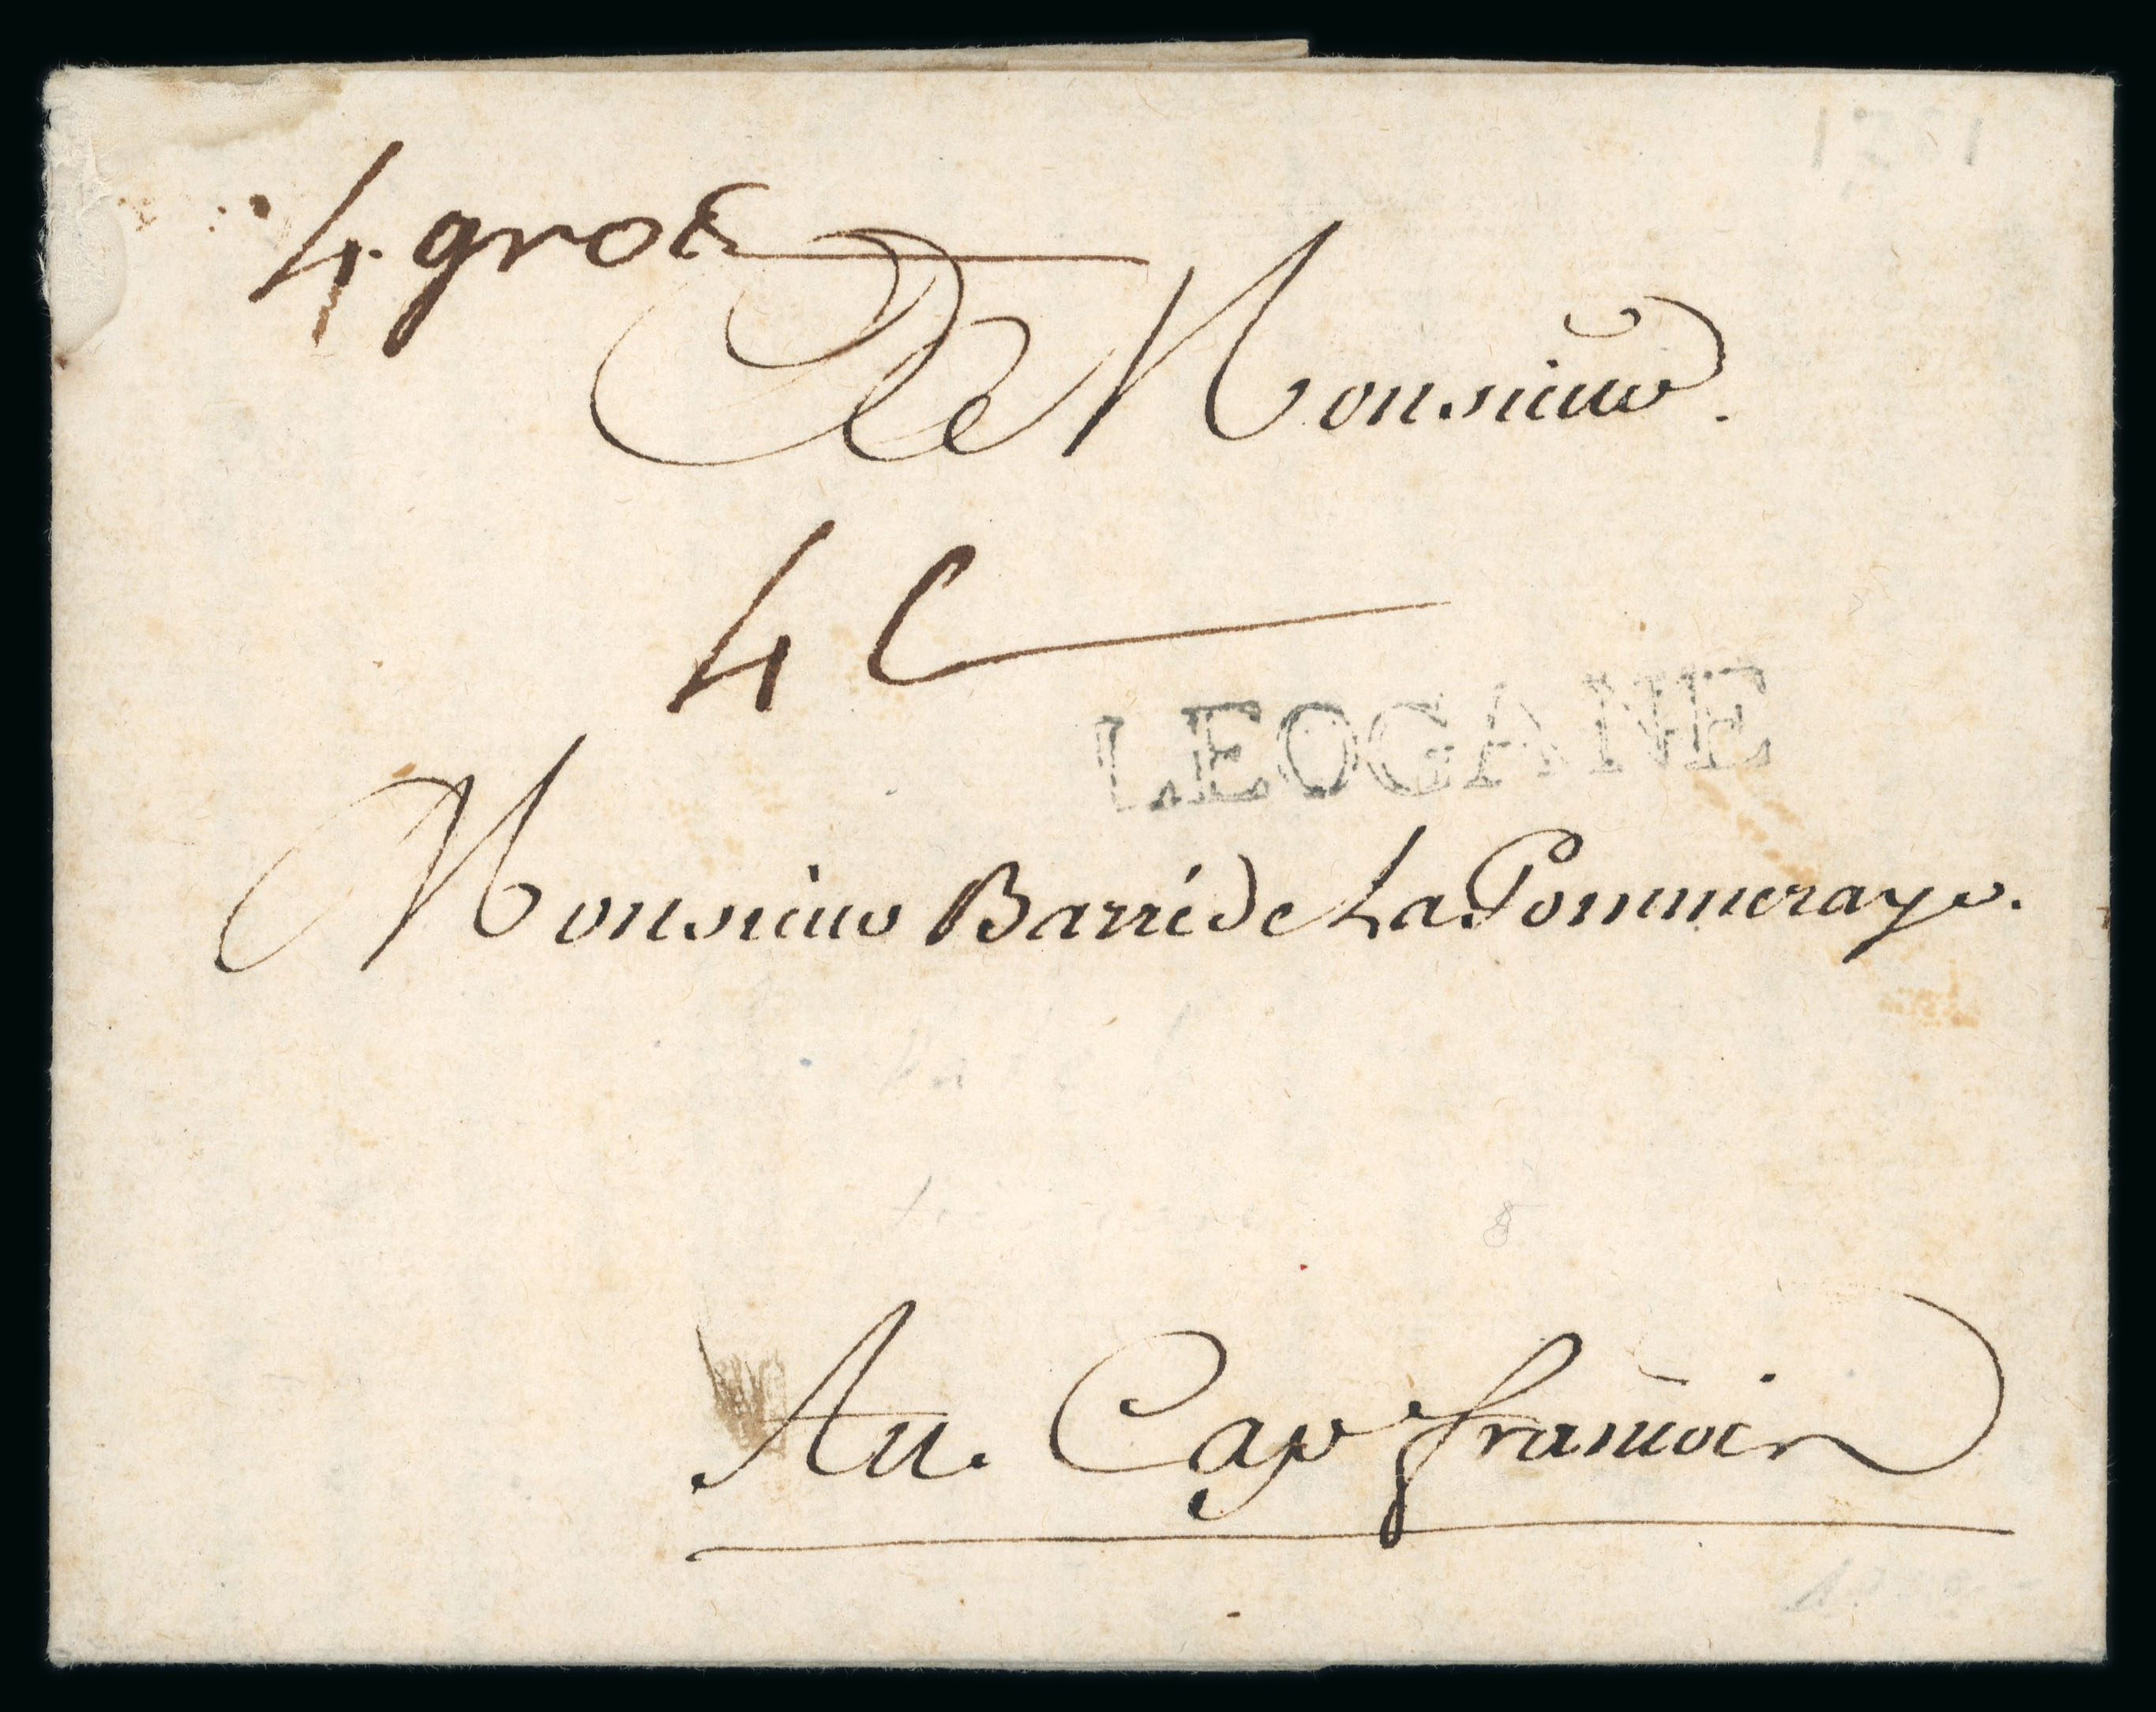 4 gros
De Monsieur.
4 L
LEOGANE
Monsieur Barré de La Pommeraye.
Au. Cap francois